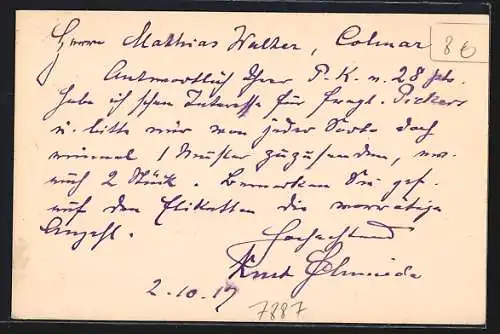 Herrn Mathias Walter, Colmar
Antwortlich Ihrer P.K. v. 28 pto.
habe ich schon Interesse für fragl. Pickers
u. bitte mir von jeder Sorte doch
einmal 1 Muster zuzusenden, ev.
auch 2 Stück. Bemerken Sie gef.
auf den Etiketten die vorrätige
Anzahl.
Hochachtend
Kurt
2.10.17
7887
86